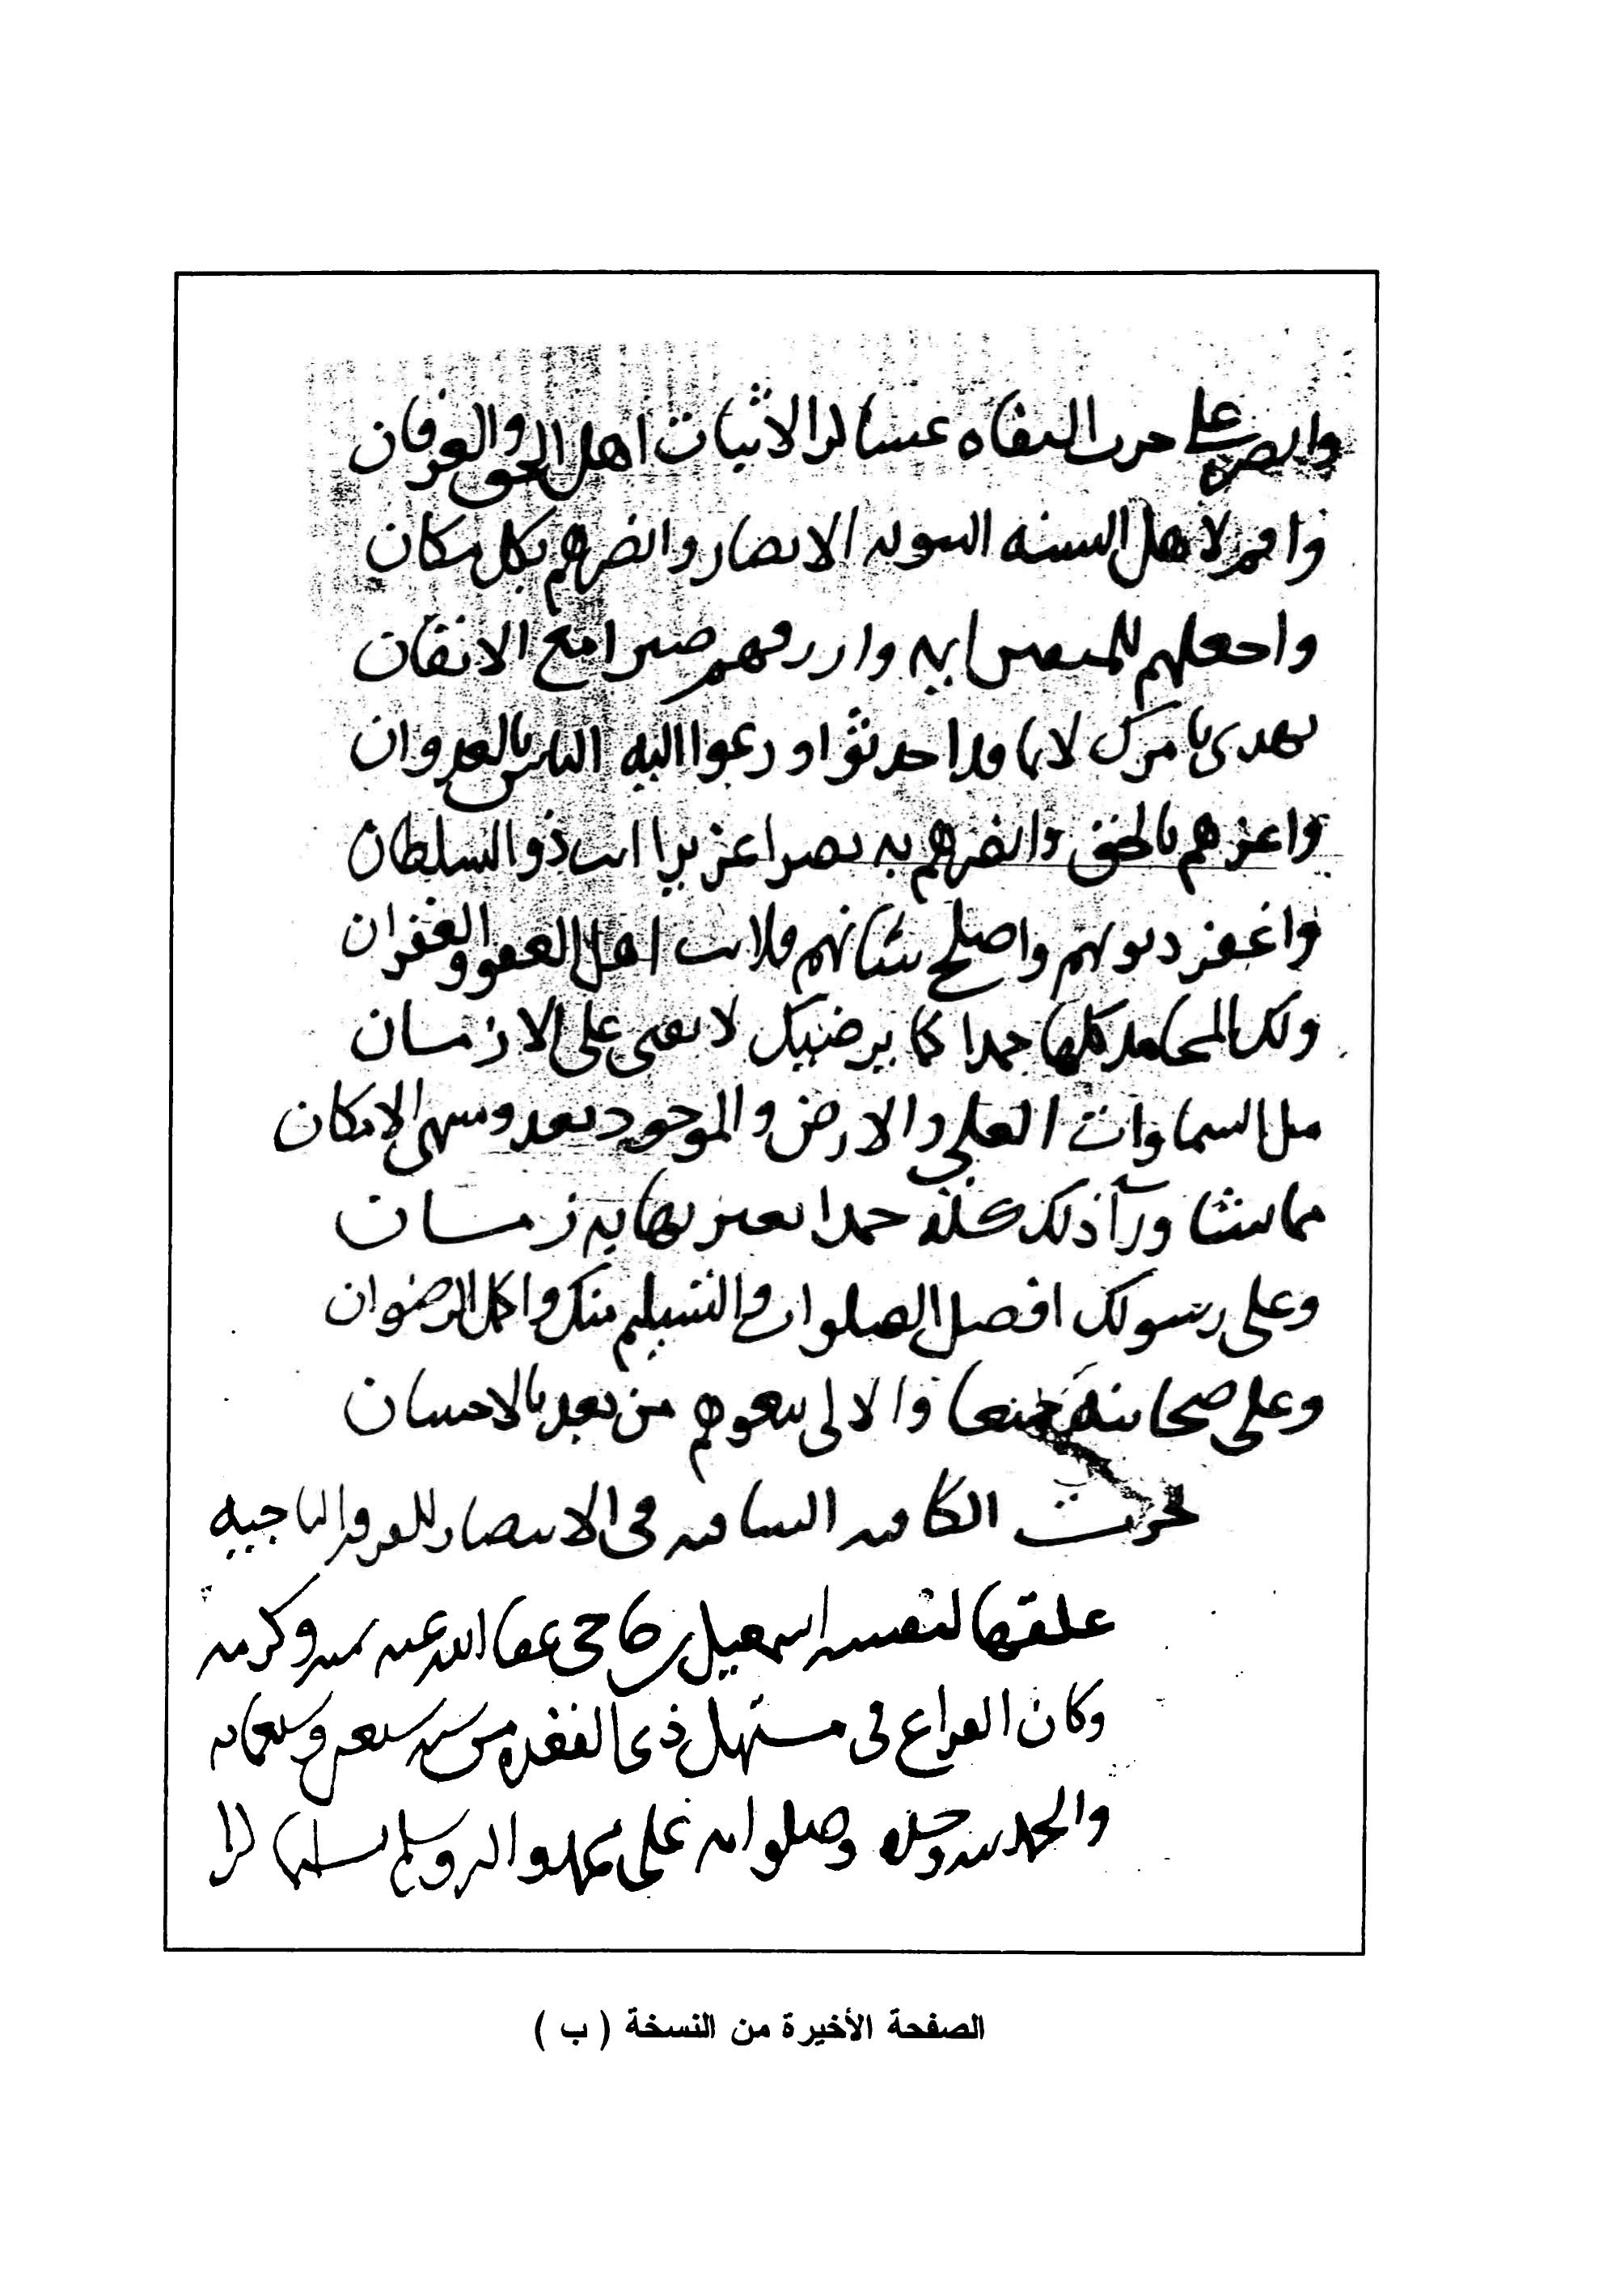 وانصر على حزب النفاة عساكر الاثبات اهل الحق والعرفان
واقم لاهل السنة النبوية الانصار وانصرهم بكل مكان
واجعلهم للمتقين ايمة وارزقهم صبرا مع الايقان
تهدى بامرك لا بما قد احدثوا ودعوا اليه الناس بالعدوان
واعزهم بالحق وانصرهم به نصرا عزيزا انت ذو السلطان
واغفر ذنوبهم واصلح شانهم فلانت اهل العفو والغفران
ولك المحامد كلها حمدا كما يرضيك لا يفنى على الازمان
مل السماوات العلى والارض والموجود بعد ومنتهى الامكان
مما تشا ورآ ذلك كله حمدا بغير نهاية زمان
وعلى رسولك افضل الصلوات والتسليم منك واكمل الرضوان
وعلى صحابته جميعا والالى تبعوهم من بعد بالاحسان
نجزت الكافية الشافية فى الانتصار للفرقة الناجيه
علقها لنفسه اسمعيل بن حاجى عفا الله عنه بمنه وكرمه
وكان الفراغ فى مستهل ذى القعدة من سنة وسبعمائة
والحمد لله وحده وصلواته على محمد واله وسلم تسليما كثيرا
الصفحة الأخيرة من النسخة ( ب )